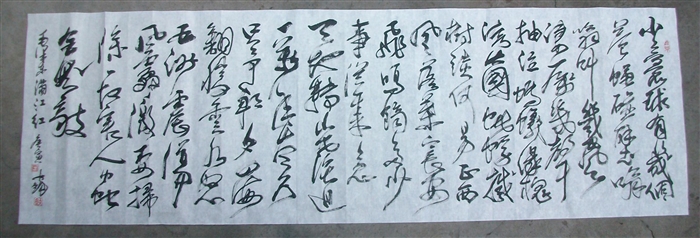 小小寰球有幾個
蒼蠅碰壁嗡
嗡叫幾聲
凄厲幾聲
抽泣螞蟻緣槐
誇大國蚍蜉撼
樹談何易正西
風落葉下長安
飛鳴鏑多少
事從來急
天地轉光陰迫
一萬年太久
只爭朝夕四海
翻騰雲水怒
五洲震蕩
風雷激要掃
除一切害人蟲
全無敵
毛澤東滿江紅 庚寅